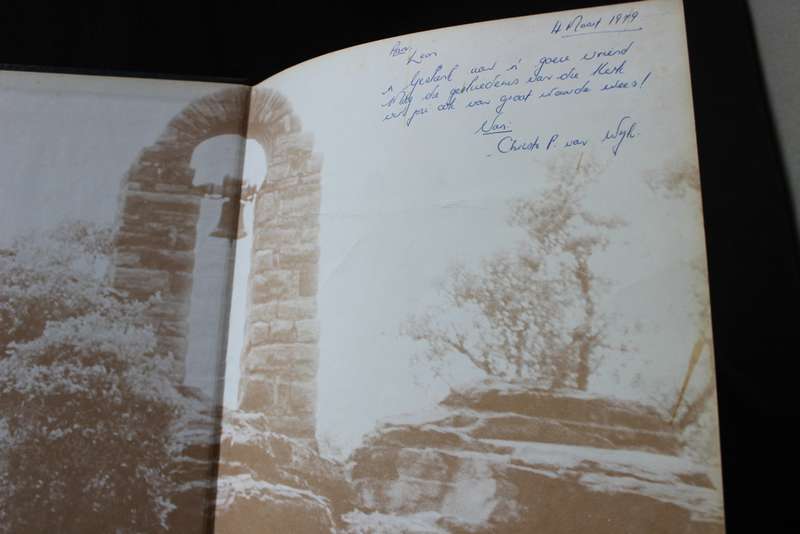 4 Maart 1979
Aan:
Leon
'n Geskenk aan 'n goeie vriend
Mag die geskiedenis van die Kerk
vir jou ook van groot waarde wees!
Van:
- Christo P. van Wyk.